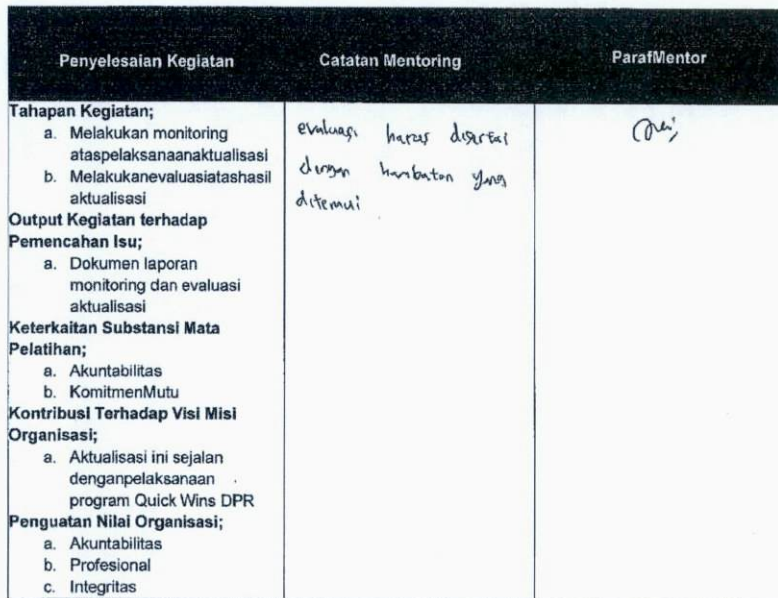 Penyelesaian Kegiatan
Catatan Mentoring
ParafMentor
Tahapan Kegiatan;
a. Melakukan monitoring
ataspelaksanaanaktualisasi
b. Melakukanevaluasiatashasil
aktualisasi
Output Kegiatan terhadap
Pemencahan Isu;
a. Dokumen laporan
monitoring dan evaluasi
aktualisasi
Keterkaitan Substansi Mata
Pelatihan;
a. Akuntabilitas
b. KomitmenMutu
Kontribusi Terhadap Visi Misi
Organisasi;
a. Aktualisasi ini sejalan
denganpelaksanaan
program Quick Wins DPR
Penguatan Nilai Organisasi;
a. Akuntabilitas
b. Profesional
c. Integritas
evaluasi harus disertai
dengan hambatan yang
ditemui